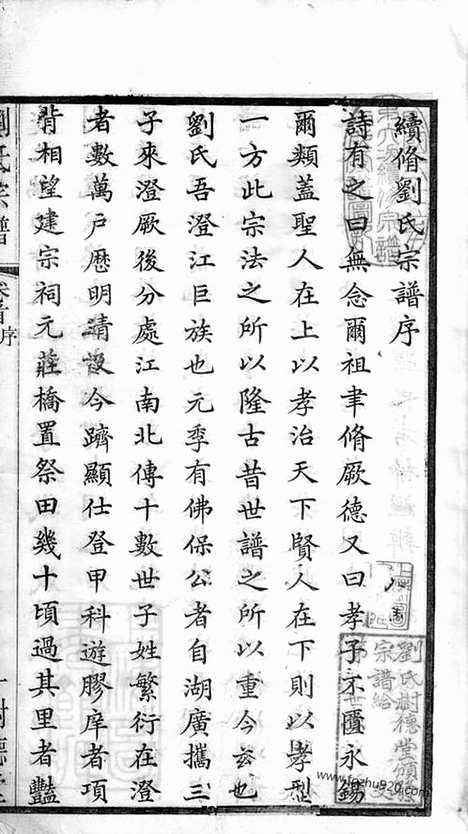 續脩劉氏宗譜序
詩有之曰無念爾祖聿脩厥德又曰孝子不匱永錫
爾類蓋聖人在上以孝治天下賢人在下則以孝型
一方此宗法之所以隆古昔世譜之所以重今玆也
劉氏吾澄江巨族也元季有佛保公者自湖廣攜三
子來澄厥後分處江南北傳十數世子姓繁衍在澄
者數萬戶歷明清迄今躋顯仕登甲科遊膠庠者項
背相望建宗祠元莊橋置祭田幾十頃過其里者豔
劉氏宗譜
卷首序
一樹德堂
劉氏樹德堂頒
宗譜給
www.fozhu920.com